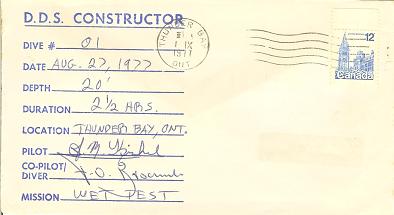 D.D.S. CONSTRUCTOR
DIVE # 01
DATE AUG. 27, 1977
DEPTH 20'
DURATION 2 1/2 HRS.
LOCATION THUNDER BAY, ONT.
PILOT
CO-PILOT/
DIVER
MISSION WET TEST
THUNDER BAY
1 IX
1977
ONT.
12
Canada